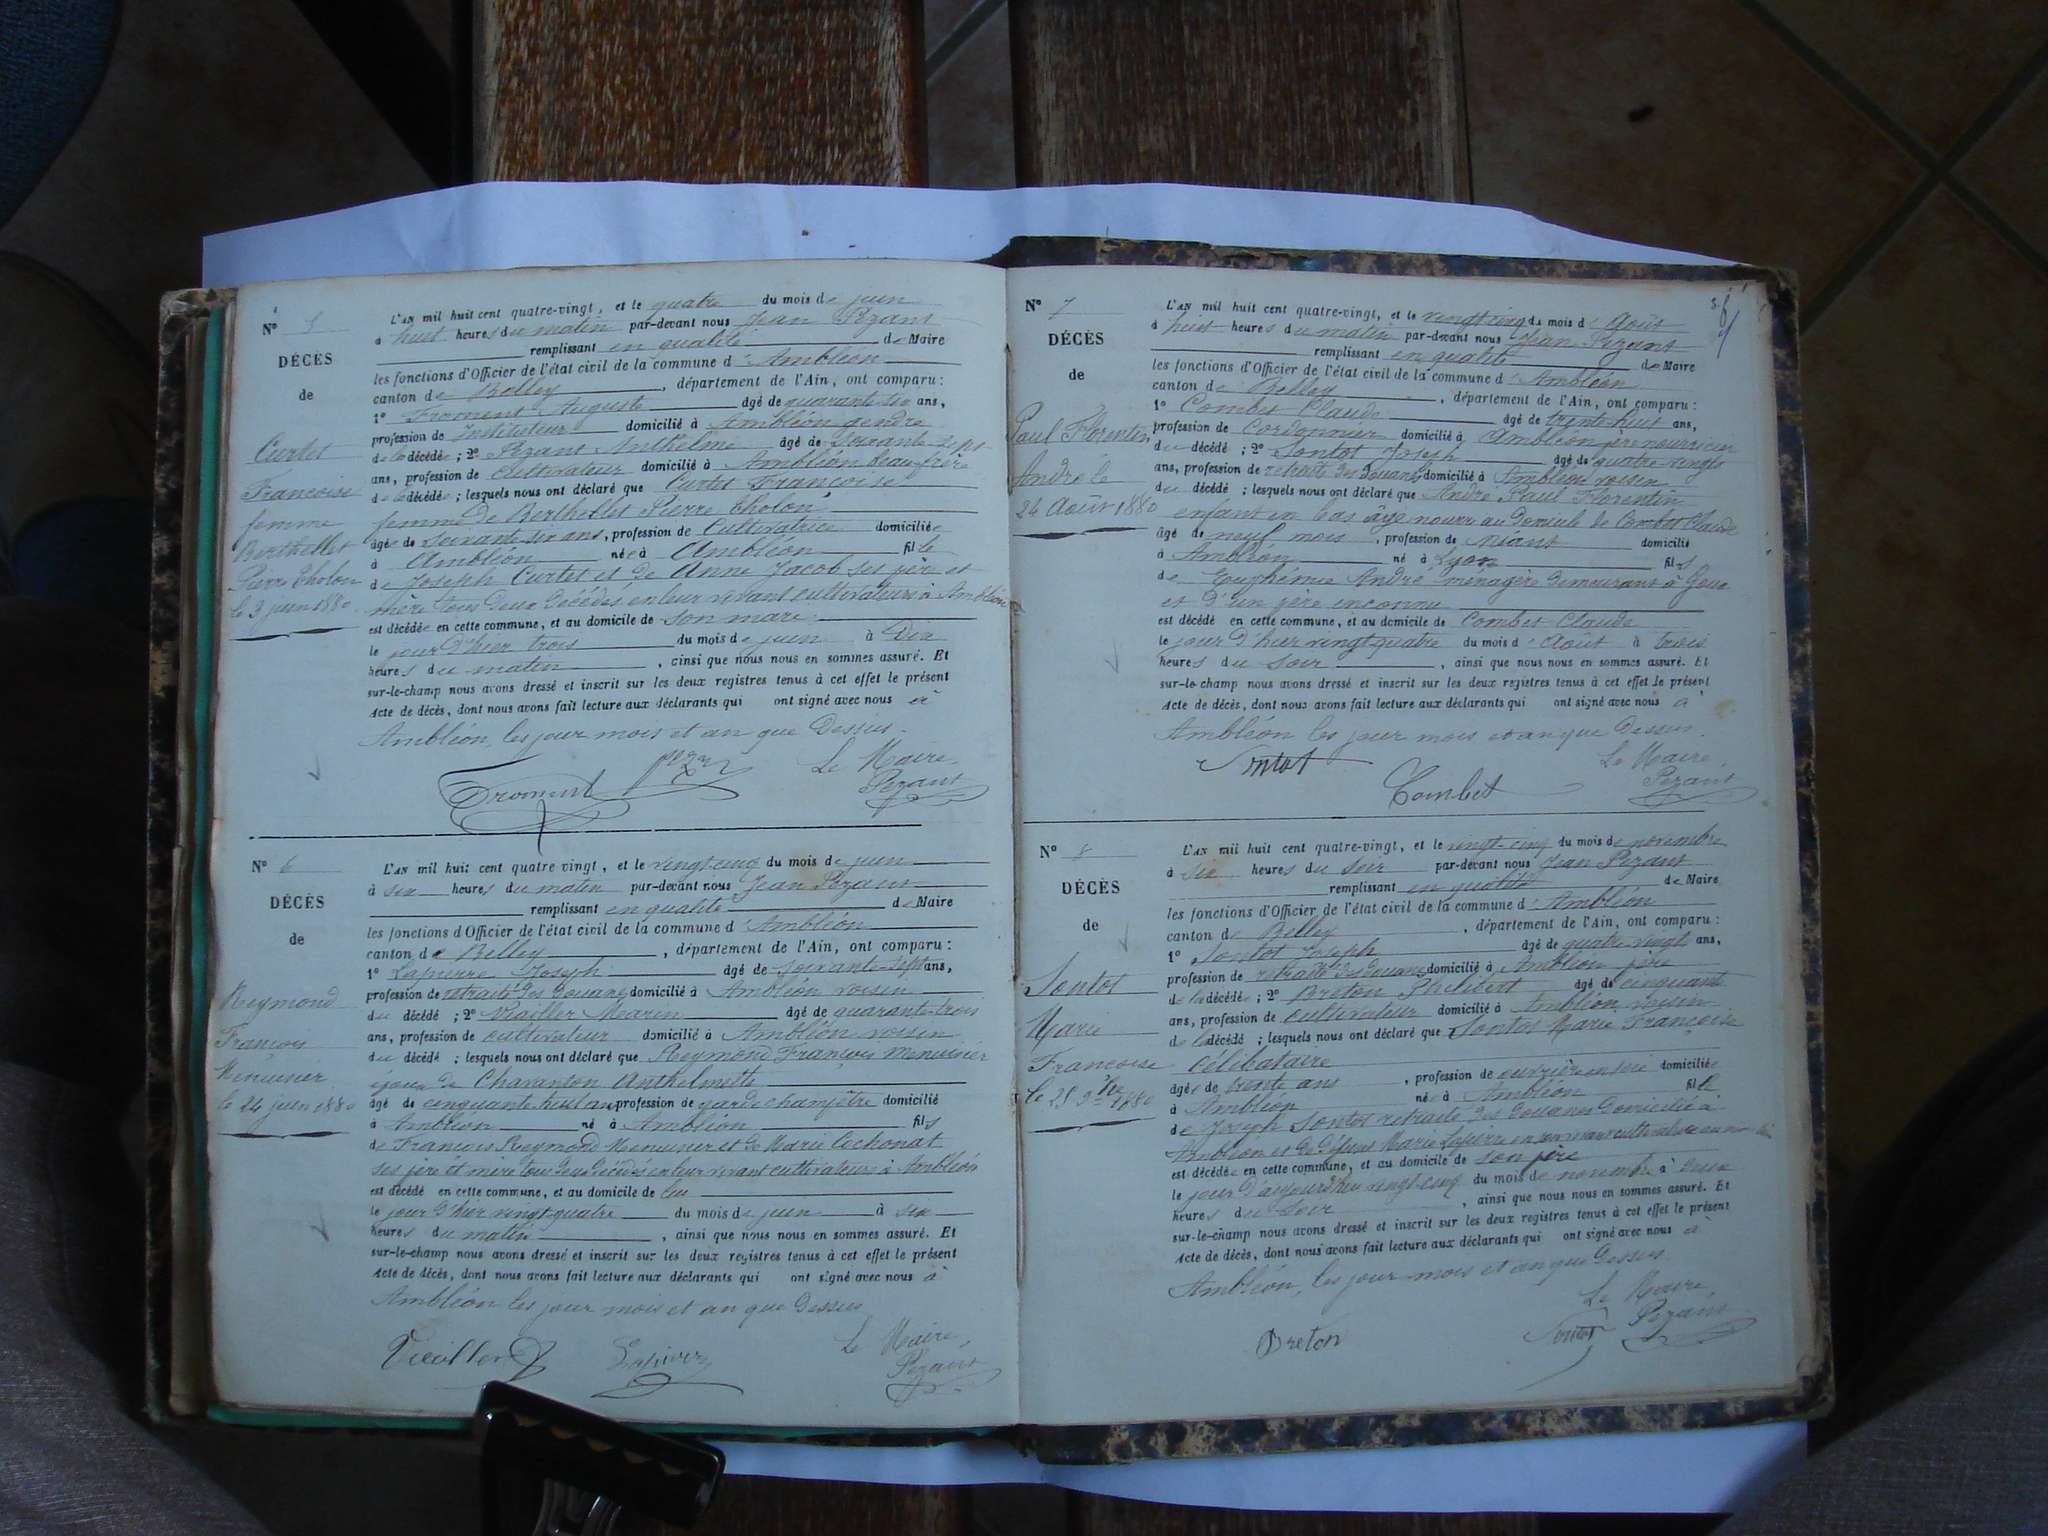 N° 5
DÉCÈS
de
Curtet
Françoise
femme
Berthellet
Pierre Tholon
le 3 juin 1880
L'AN mil huit cent quatre-vingt, et le quatre du mois de juin
à huit heures du matin par-devant nous Jean Pezant
remplissant en qualité de Maire
les fonctions d'Officier de l'état civil de la commune d'Ambléon
canton de Belley, département de l'Ain, ont comparu :
1° Froment Auguste âgé de quarante six ans,
profession de Instituteur domicilié à Ambléon gendre
de la décédée ; 2° Pezant Anthelme âgé de Soixante-sept
ans, profession de Cultivateur domicilié à Ambléon beau-frère
de la décédée ; lesquels nous ont déclaré que Curtet Françoise
femme de Berthellet Pierre Tholon
âgée de Soixante-six ans, profession de Cultivatrice domiciliée
à Ambléon née à Ambléon fille
de Joseph Curtet et de Anne Jacob ses père et
mère tous deux décédés en leur vivant cultivateurs à Ambléon
est décédée en cette commune, et au domicile de son mari
le jour d'hier trois du mois de juin à Dix
heures du matin, ainsi que nous nous en sommes assuré. Et
sur-le-champ nous avons dressé et inscrit sur les deux registres tenus à cet effet le présent
Acte de décès, dont nous avons fait lecture aux déclarants qui ont signé avec nous à
Ambléon, les jour mois et an que Dessus.
Le Maire,
Froment Pezant
N° 6
DÉCÈS
de
Reymond
François
Menuisier
le 24 juin 1880
L'AN mil huit cent quatre vingt, et le vingt-cinq du mois de juin
à six heures du matin par-devant nous Jean Pezant
remplissant en qualité de Maire
les fonctions d'Officier de l'état civil de la commune d'Ambléon
canton de Belley, département de l'Ain, ont comparu :
1° Lapierre Joseph âgé de soixante-sept ans,
profession de retraité des Douanes domicilié à Ambléon voisin
du décédé ; 2° Marin âgé de quarante-trois
ans, profession de cultivateur domicilié à Ambléon voisin
du décédé ; lesquels nous ont déclaré que Reymond François Menuisier
époux de Chavanton Anthelmette
âgé de cinquante-huit ans profession de garde champêtre domicilié
à Ambléon né à Ambléon fils
de François Reymond Menuisier et de Marie Cochonat
ses père et mère tous deux décédés en leur vivant cultivateurs à Ambléon
est décédé en cette commune, et au domicile de lui
le jour d'hier vingt-quatre du mois de juin à six
heures du matin, ainsi que nous nous en sommes assuré. Et
sur-le-champ nous avons dressé et inscrit sur les deux registres tenus à cet effet le présent
Acte de décès, dont nous avons fait lecture aux déclarants qui ont signé avec nous à
Ambléon les jour mois et an que Dessus
Le Maire,
Pezant
N° 7
DÉCÈS
de
Paul Florentin
André le
24 Août 1880
L'AN mil huit cent quatre-vingt, et le vingt-cinq du mois d'Août
à huit heures du matin par-devant nous Jean Pezant
remplissant en qualité de Maire
les fonctions d'Officier de l'état civil de la commune d'Ambléon
canton de Belley, département de l'Ain, ont comparu :
1° Combet Claude âgé de trente-huit ans,
profession de Cordonnier domicilié à Ambléon père nourricier
du décédé ; 2° Sontot Joseph âgé de quatre-vingts
ans, profession de retraité des Douanes domicilié à Ambléon voisin
du décédé ; lesquels nous ont déclaré que André Paul Florentin
enfant en bas âge nourri au Domicile de Combet Claude
âgé de neuf mois, profession de néant domicilié
à Ambléon né à Lyon fils
de Euphémie André ménagère demeurant à
et d'un père inconnu
est décédé en cette commune, et au domicile de Combet Claude
le jour d'hier vingt-quatre du mois d'Août à trois
heures du soir, ainsi que nous nous en sommes assuré. Et
sur-le-champ nous avons dressé et inscrit sur les deux registres tenus à cet effet le présent
Acte de décès, dont nous avons fait lecture aux déclarants qui ont signé avec nous à
Ambléon les jour mois et an que Dessus.
Sontot Combet
Le Maire,
Pezant
N° 8
DÉCÈS
de
Sontot
Marie
Françoise
le 25 9bre 1880
L'AN mil huit cent quatre-vingt, et le vingt-cinq du mois de novembre
à six heures du soir par-devant nous Jean Pezant
remplissant en qualité de Maire
les fonctions d'Officier de l'état civil de la commune d'Ambléon
canton de Belley, département de l'Ain, ont comparu :
1° Sontot Joseph âgé de quatre-vingts ans,
profession de retraité des Douanes domicilié à Ambléon père
de la décédée ; 2° Breton Philibert âgé de cinquante
ans, profession de cultivateur domicilié à Ambléon voisin
de la décédée ; lesquels nous ont déclaré que Sontot Marie Françoise
Célibataire
âgée de trente ans, profession de ouvrière en soie domiciliée
à Ambléon née à Ambléon fille
de Joseph Sontot retraité des Douanes Domicilié à
Ambléon et de Défunte Marie Lapierre en son vivant cultivatrice au
est décédée en cette commune, et au domicile de son père
le jour d'aujourd'hui vingt-cinq du mois de novembre à deux
heures du Soir, ainsi que nous nous en sommes assuré. Et
sur-le-champ nous avons dressé et inscrit sur les deux registres tenus à cet effet le présent
Acte de décès, dont nous avons fait lecture aux déclarants qui ont signé avec nous à
Ambléon, les jour mois et an que Dessus.
Le Maire,
Breton Sontot Pezant